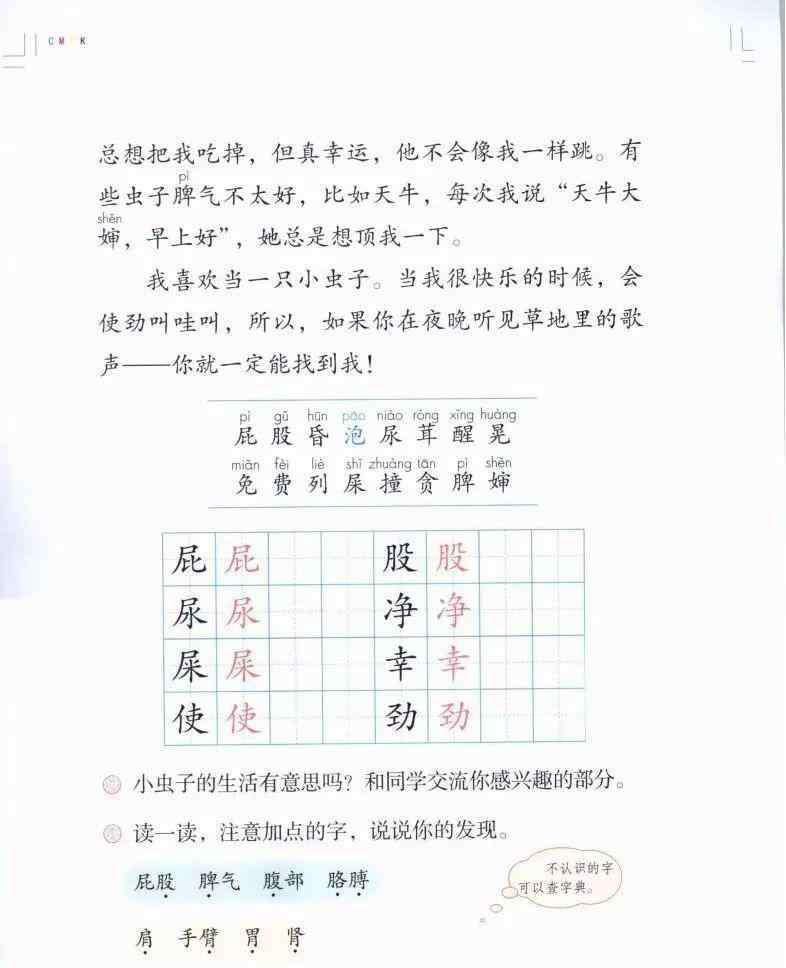 CMYK
总想把我吃掉，但真幸运，他不会像我一样跳。有
pí
些虫子脾气不太好，比如天牛，每次我说“天牛大
shěn
婶，早上好”，她总是想顶我一下。
我喜欢当一只小虫子。当我很快乐的时候，会
使劲叫哇叫，所以，如果你在夜晚听见草地里的歌
声——你就一定能找到我！
pì gǔ hūn pāo niào róng xǐng huàng
屁 股 昏 泡 尿 茸 醒 晃
miǎn fèi liè shǐ zhuàng tān pí shěn
免 费 列 屎 撞 贪 脾 婶
屁 屁 股 股
尿 尿 净 净
屎 屎 幸 幸
使 使 劲 劲
小虫子的生活有意思吗？和同学交流你感兴趣的部分。
读一读，注意加点的字，说说你的发现。
屁股 脾气 腹部 胳膊
不认识的字
可以查字典。
肩 手臂 胃 肾